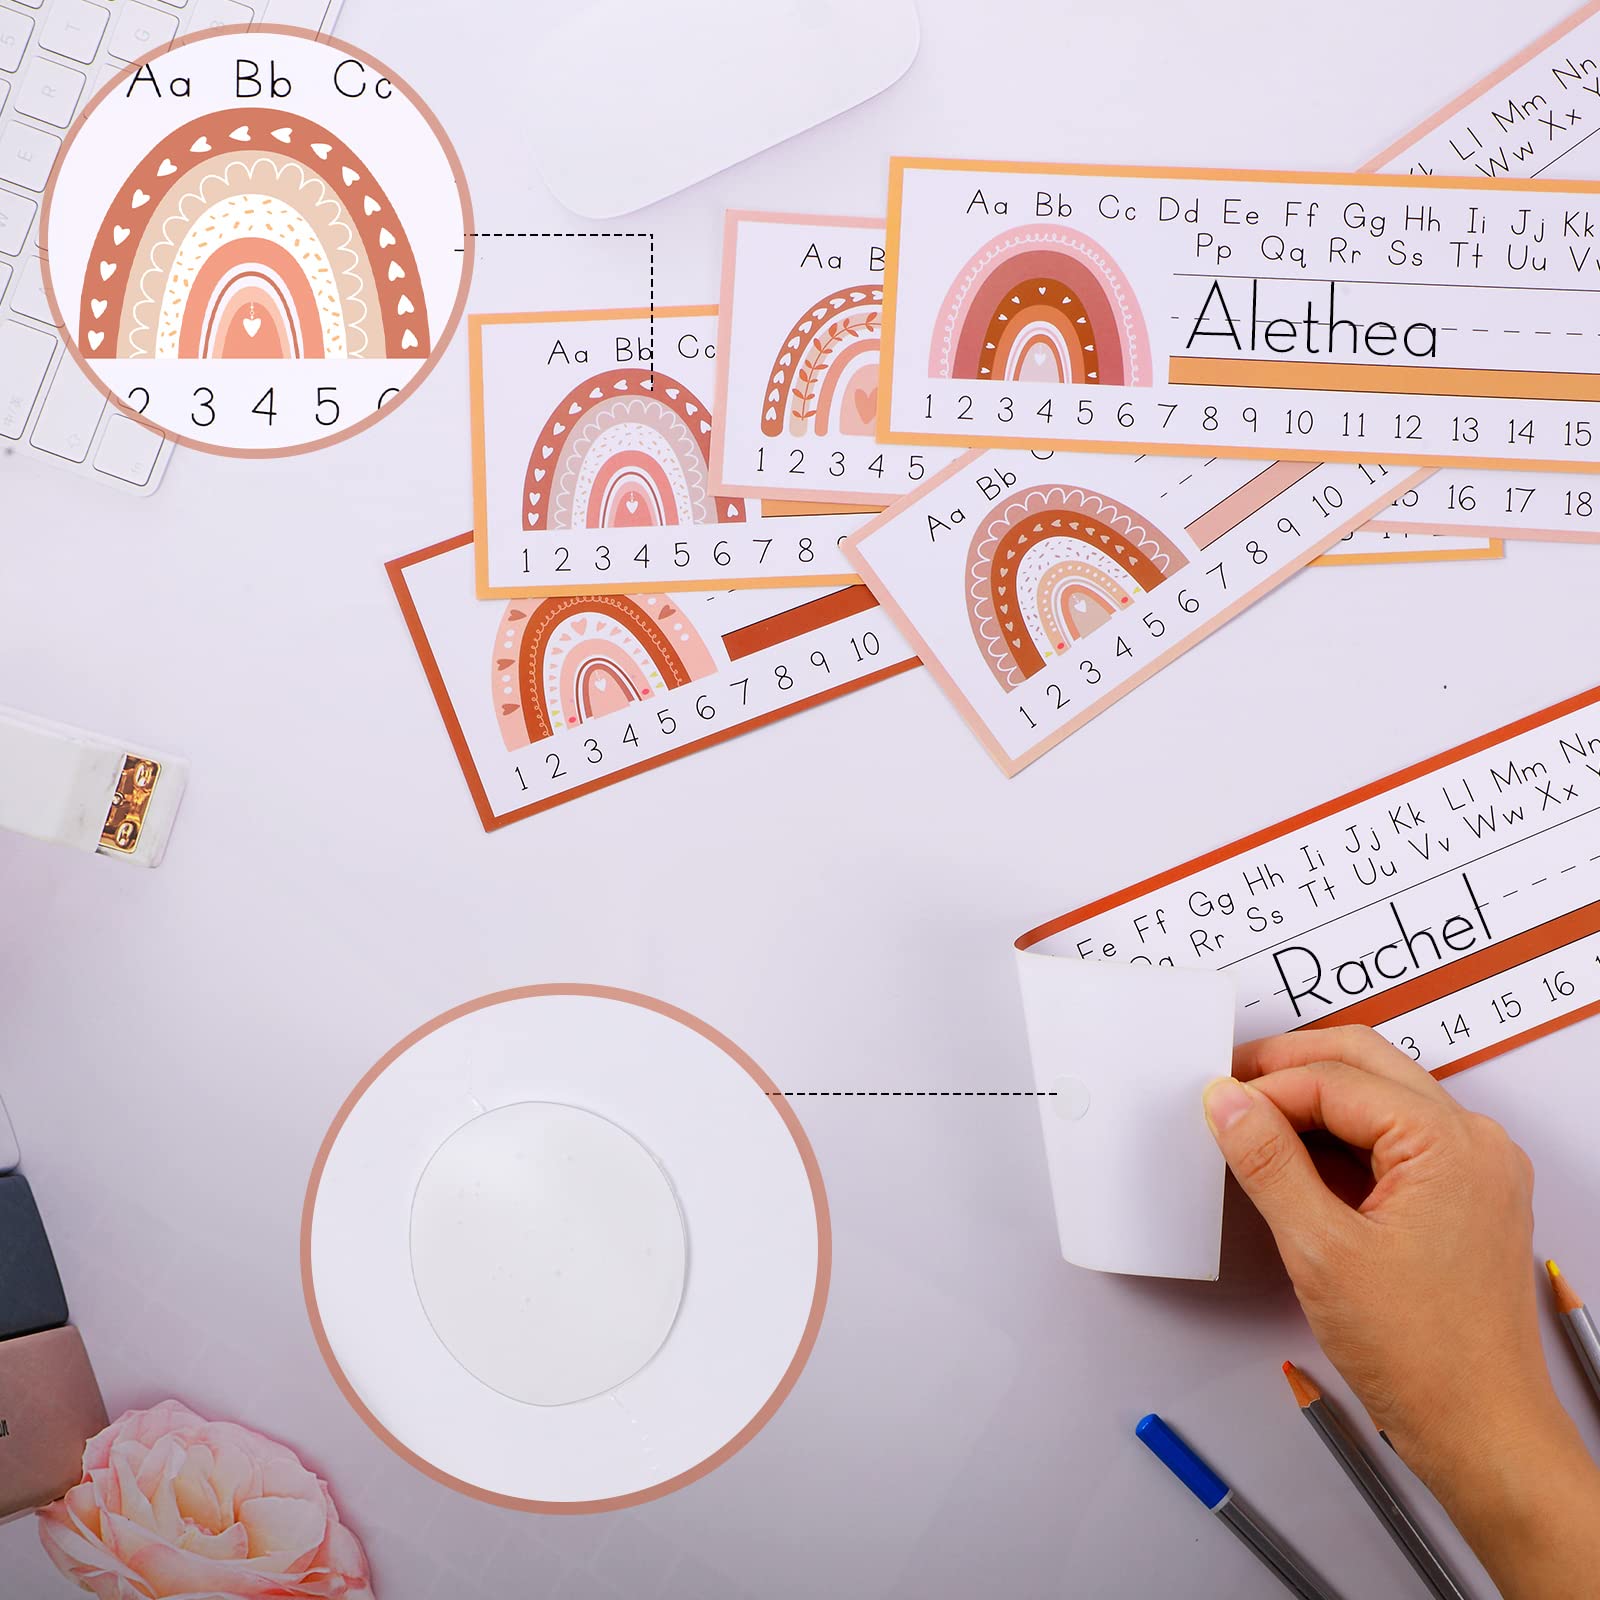 Aa Bb Cc
2 3 4 5
Aa Bb Cc Dd Ee Ff Gg Hh Ii Jj Kk
Pp Qq Rr Ss Tt Uu Vv
Alethea
1 2 3 4 5 6 7 8 9 10 11 12 13 14 15
Ll Mm Nn
Ww Xx
16 17 18
Aa B
1 2 3 4 5
Aa Bb Cc
1 2 3 4 5 6 7 8
Aa Bb
1 2 3 4 5 6 7 8 9 10 11
1 2 3 4 5 6 7 8 9 10
Ee Ff Gg Hh Ii Jj Kk Ll Mm Nn
Rr Ss Tt Uu Vv Ww Xx
Rachel
13 14 15 16
T G
5 R
E
W
A